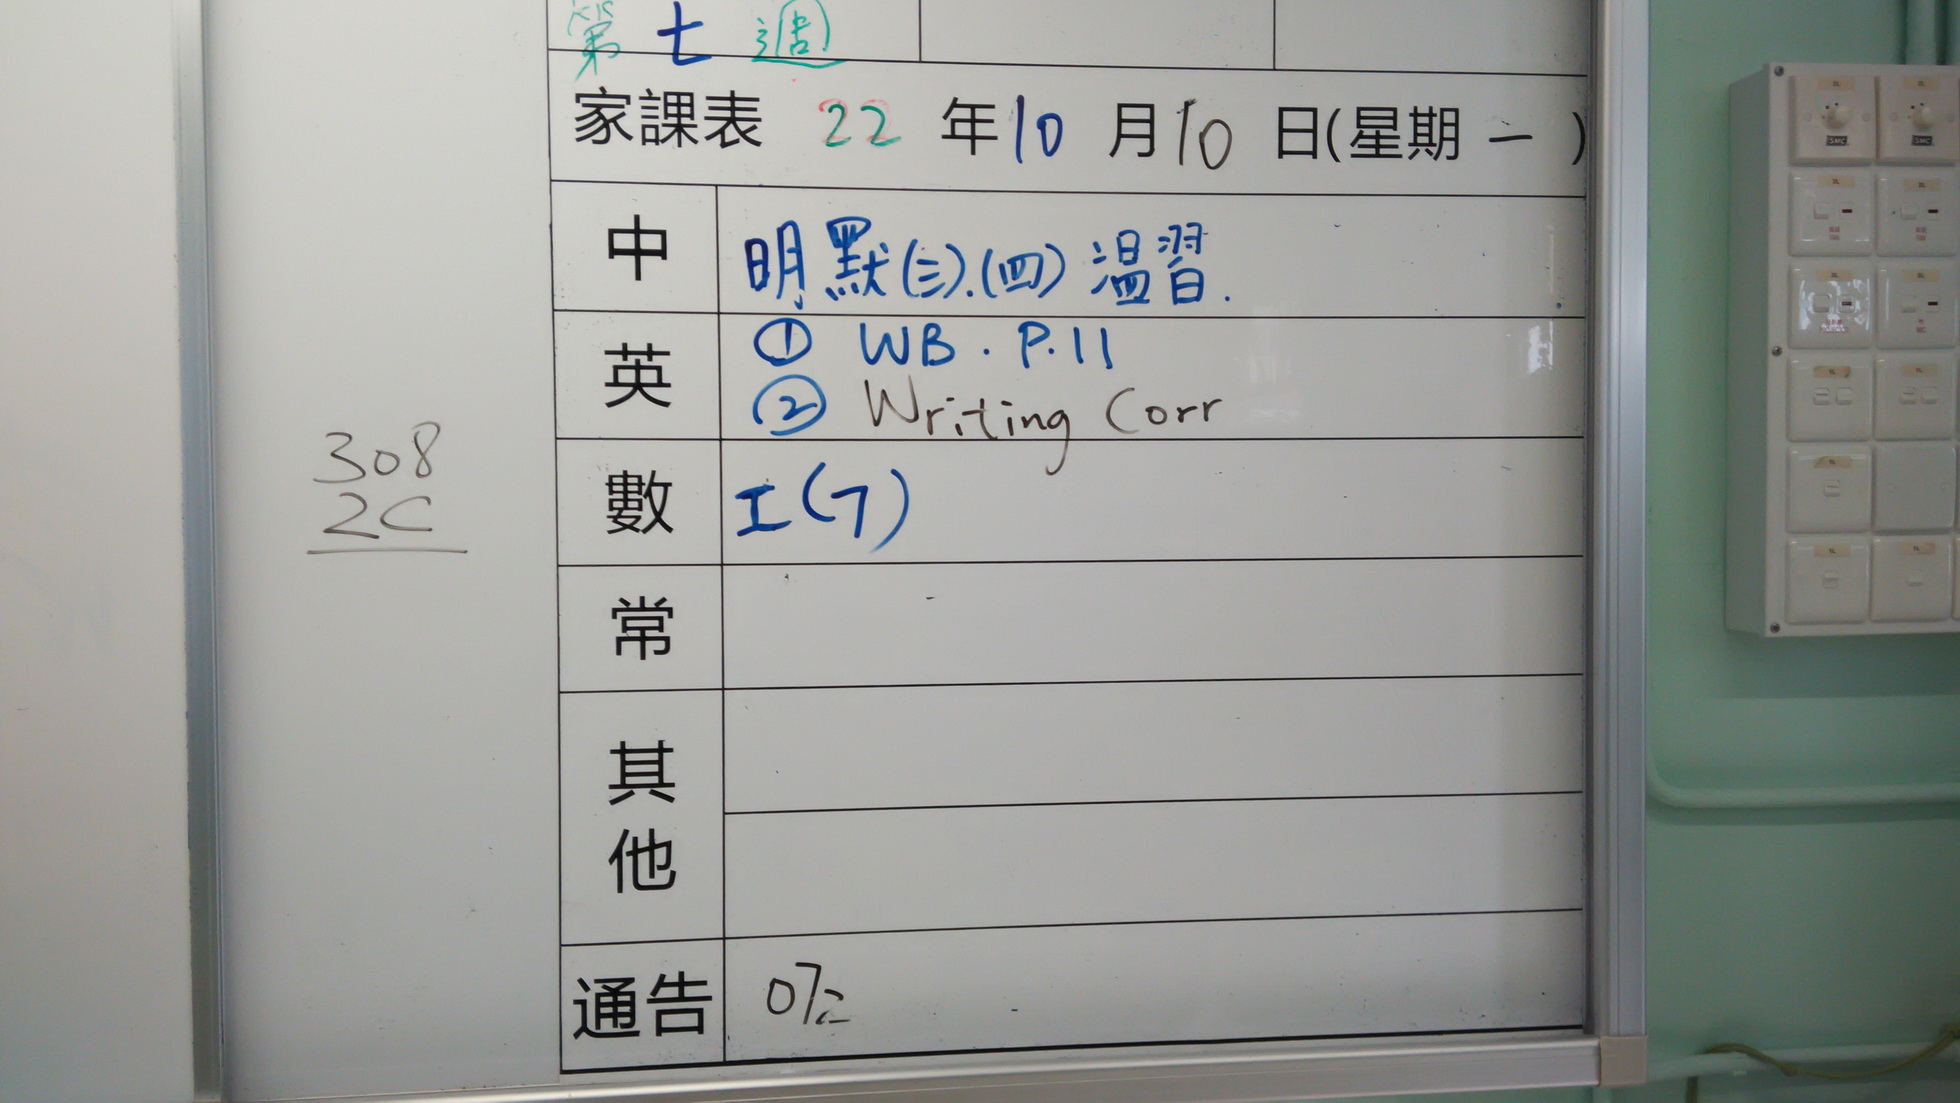 第七週
家課表 22 年 10 月 10 日(星期 一 )
中 明默(三).(四)溫習.
英 ① WB. P.11
② Writing Corr
數 工(7)
常
其他
通告 072
308
2C